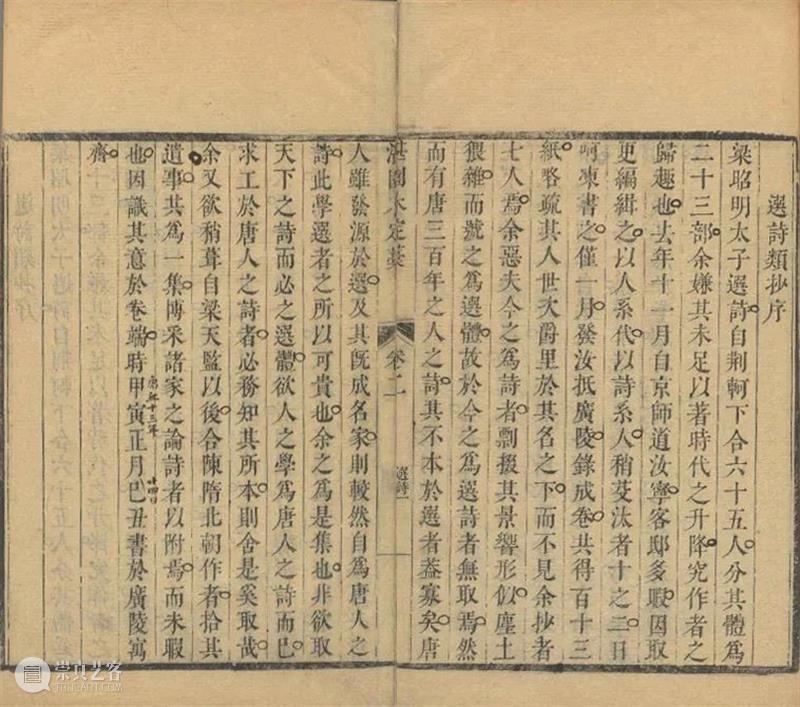 選詩類抄序
梁昭明太子選詩自荆軻下合六十五人分其體爲
二十三部余嫌其未足以著時代之升降究作者之
歸趣也去年十一月自京師道汝寧客邸多暇因取
更編緝之以人系代以詩系人稍芟汰者十之二日
呵凍書之僅一月發汝抵廣陵錄成卷共得百十三
紙略疏其人世次爵里於其名之下而不見余抄者
七人焉余惡夫今之爲詩者剽掇其景響形似塵土
猥雜而號之爲選體故於今之爲選詩者無取焉然
而有唐三百年之人之詩其不本於選者葢寡矣唐
湛園未定藁
卷二
選詩一
人雖發源於選及其旣成名家則較然自爲唐人之
詩此學選者之所以可貴也余之爲是集也非欲取
天下之詩而必之選體欲人之學爲唐人之詩而已
求工於唐人之詩者必務知其所本則舍是奚取哉
余又欲稍葺自梁天監以後合陳隋北朝作者拾其
遺事共爲一集博采諸家之論詩者以附焉而未暇
也因識其意於卷端時甲寅正月巳丑書於廣陵寓
康熙十三年
十四日
齋
崇真艺客